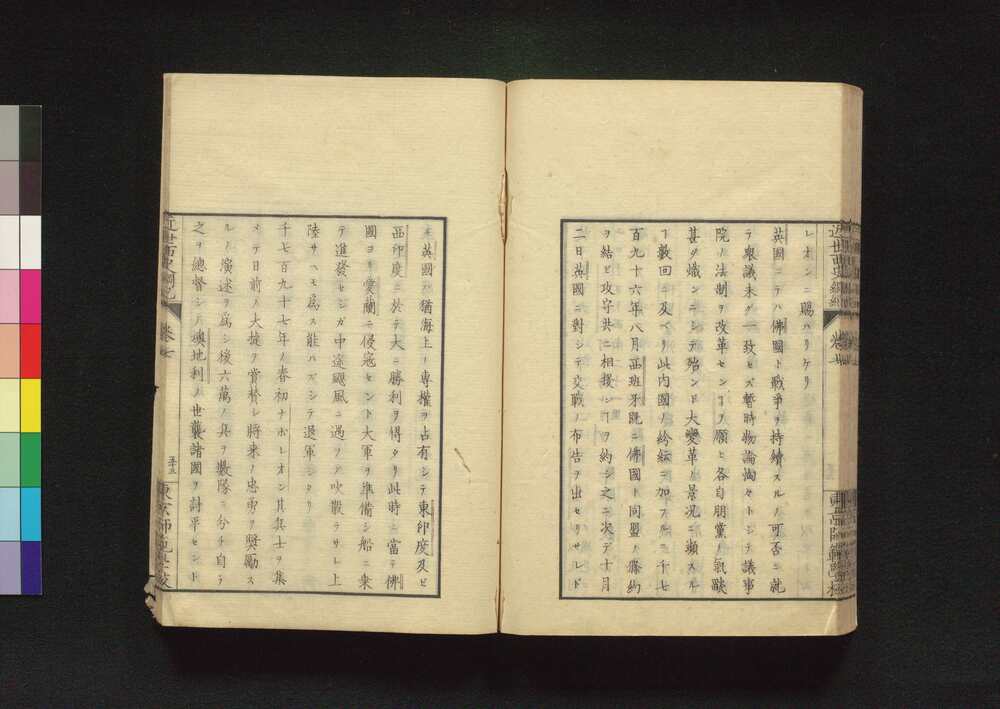 レオンニ賜ハリケリ
英国ニテハ佛國ト戰爭ヲ持續スルノ可否ニ就
テ衆議未ダ一致セズ暫時物論洶々トシテ議事
院ノ法制ヲ改革センヿヲ願ヒ各自朋黨ノ氣燄
甚タ熾ンニシテ殆ンド大變革ノ景况ニ瀕スル
ヿ數回ニ及ベリ此内國ノ紛紜ニ加フルニ千七
百九十六年八月西班牙既ニ佛國ト同盟ノ條約
ヲ結ビ攻守共ニ相援ンヿヲ約シ之ニ次デ十月
二日英國ニ對シテ交戰ノ布告ヲ出セリサレド
モ英國ハ猶海上ノ専權ヲ占有シテ東印度及ビ
西印度ニ於テ大ニ勝利ヲ得タリ此時ニ當テ佛
國ヨリ愛蘭ニ侵寇セント大軍ヲ準備シ船ニ乗
テ進發セシガ中途颶風ニ遇フテ吹散ラサレ上
陸サヘモ爲ス能ハズシテ退軍シタリ
千七百九十七年ノ春初ナポレオン其兵士ヲ集
メテ目前ノ大捷ヲ賞替シ將来ノ忠勇ヲ奬勵ス
ルノ演述ヲ爲シ後六萬ノ兵ヲ數隊ニ分チ自ラ
之ヲ總督シテ澳地利ノ世襲諸國ヲ討平セント
近世西史綱紀
卷七
三十五
東京師範學校